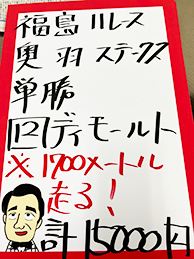 福島11レース
奥羽ステークス
単勝
12ディモールト
※1700メートル
走る!
計15000円